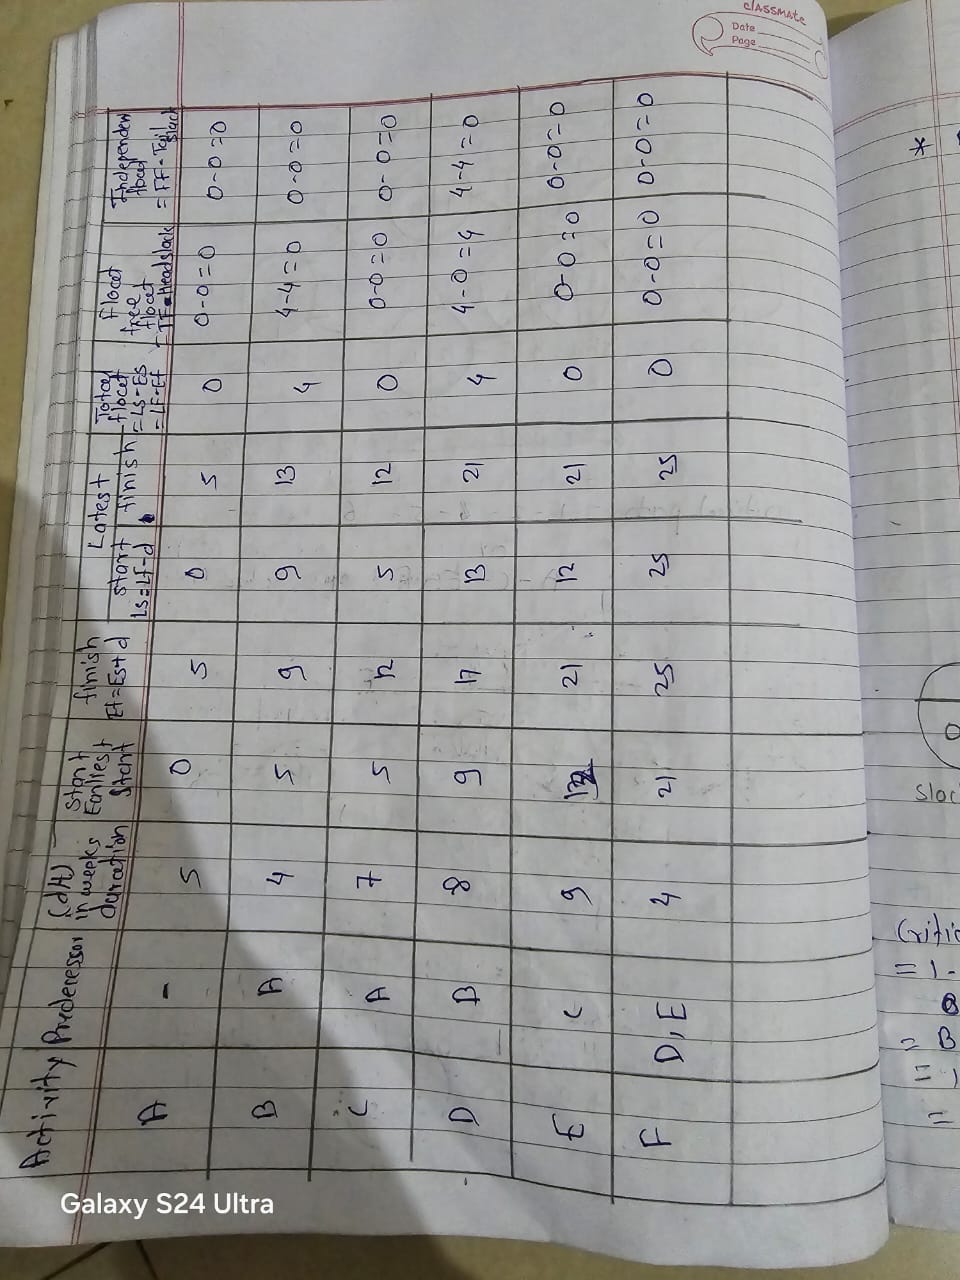 classmate
Date
Page
Activity Predecessor (dt) in weeks duration Start Earliest Start finish Ef=Es+d Latest Start Ls=Lf-d finish Total float =Ls-Es =LF-Ef float free float = TF-Headslack Independen float = FF-Tail slack
A - 5 0 5 0 5 0 0-0=0 0-0=0
B A 4 5 9 9 13 4 4-4=0 0-0=0
C A 7 5 12 5 12 0 0-0=0 0-0=0
D B 8 9 17 13 21 4 4-0=4 4-4=0
E C 9 12 21 12 21 0 0-0=0 0-0=0
F D,E 4 21 25 25 25 0 0-0=0 0-0=0
*
0
Slac
Critic
= 1-
= B
=
=
Galaxy S24 Ultra